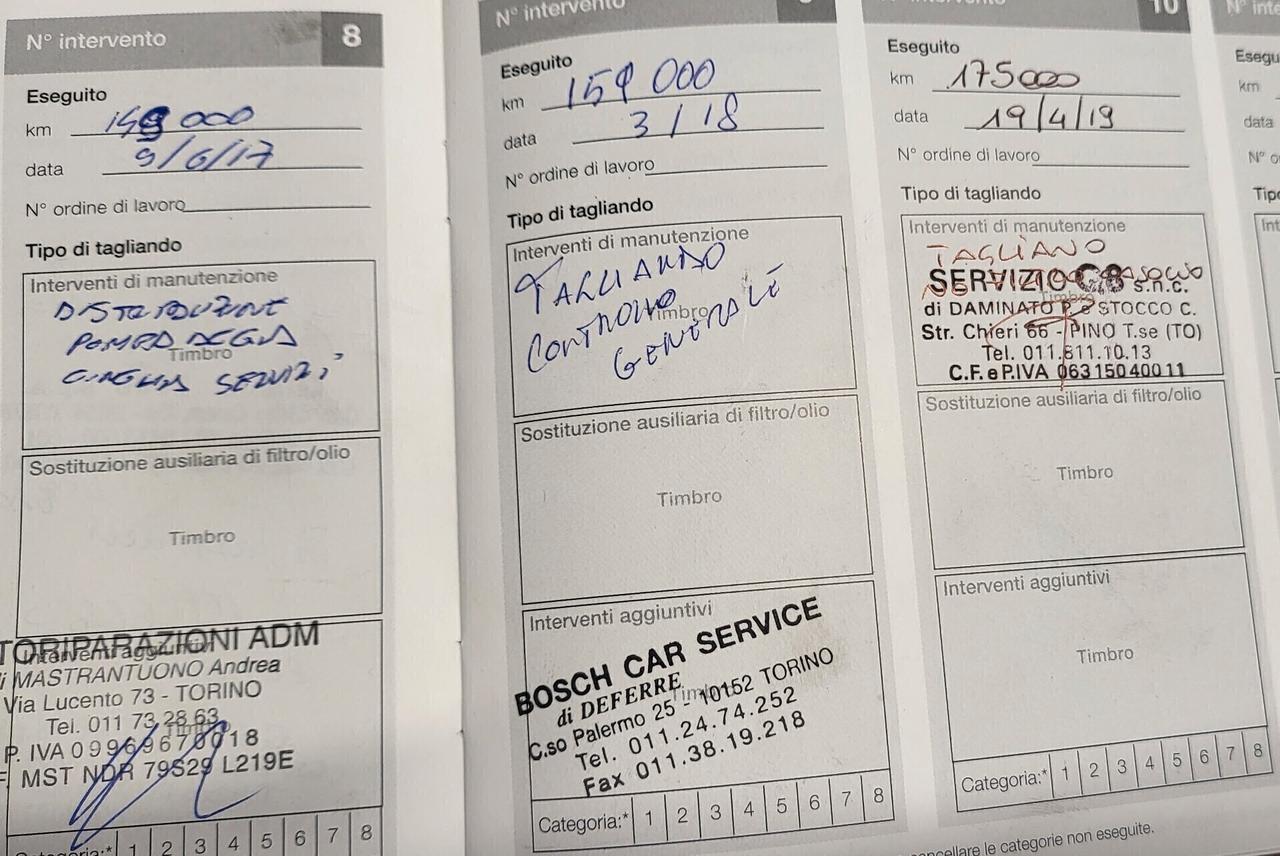 N° intervento 8
Eseguito
km 000
data 9/6/17
N° ordine di lavoro
Tipo di tagliando
Interventi di manutenzione
DISTRIBUZIONE
POMPA ACQUA
Timbro
CINGHIA SERVIZI
Sostituzione ausiliaria di filtro/olio
Timbro
TORIPARAZIONI ADM
Interventi aggiuntivi
di MASTRANTUONO Andrea
Via Lucento 73 - TORINO
Tel. 011 73.28.63
Timbro
P. IVA 09969670018
MST NDR 79S29 L219E
Categoria:* 1 2 3 4 5 6 7 8
N° intervento
Eseguito
km 159 000
data 3/18
N° ordine di lavoro
Tipo di tagliando
Interventi di manutenzione
TAGLIANDO
CONTROLLO
Timbro
GENERALE
Sostituzione ausiliaria di filtro/olio
Timbro
Interventi aggiuntivi
BOSCH CAR SERVICE
di DEFERRE
Timbro
C.so Palermo 25 - 10152 TORINO
Tel. 011.24.74.252
Fax 011.38.19.218
Categoria:* 1 2 3 4 5 6 7 8
intervento 10
Eseguito
km 175000
data 19/4/19
N° ordine di lavoro
Tipo di tagliando
Interventi di manutenzione
TAGLIANO
SERVIZIO s.n.c.
Timbro
di DAMINATO P. e STOCCO C.
Str. Chieri 66 - PINO T.se (TO)
Tel. 011.811.10.13
C.F. e P.IVA 06315040011
Sostituzione ausiliaria di filtro/olio
Timbro
Interventi aggiuntivi
Timbro
Categoria:* 1 2 3 4 5 6 7 8
cancellare le categorie non eseguite.
N° inte
Esegu
km
data
N° o
Tipo
Int